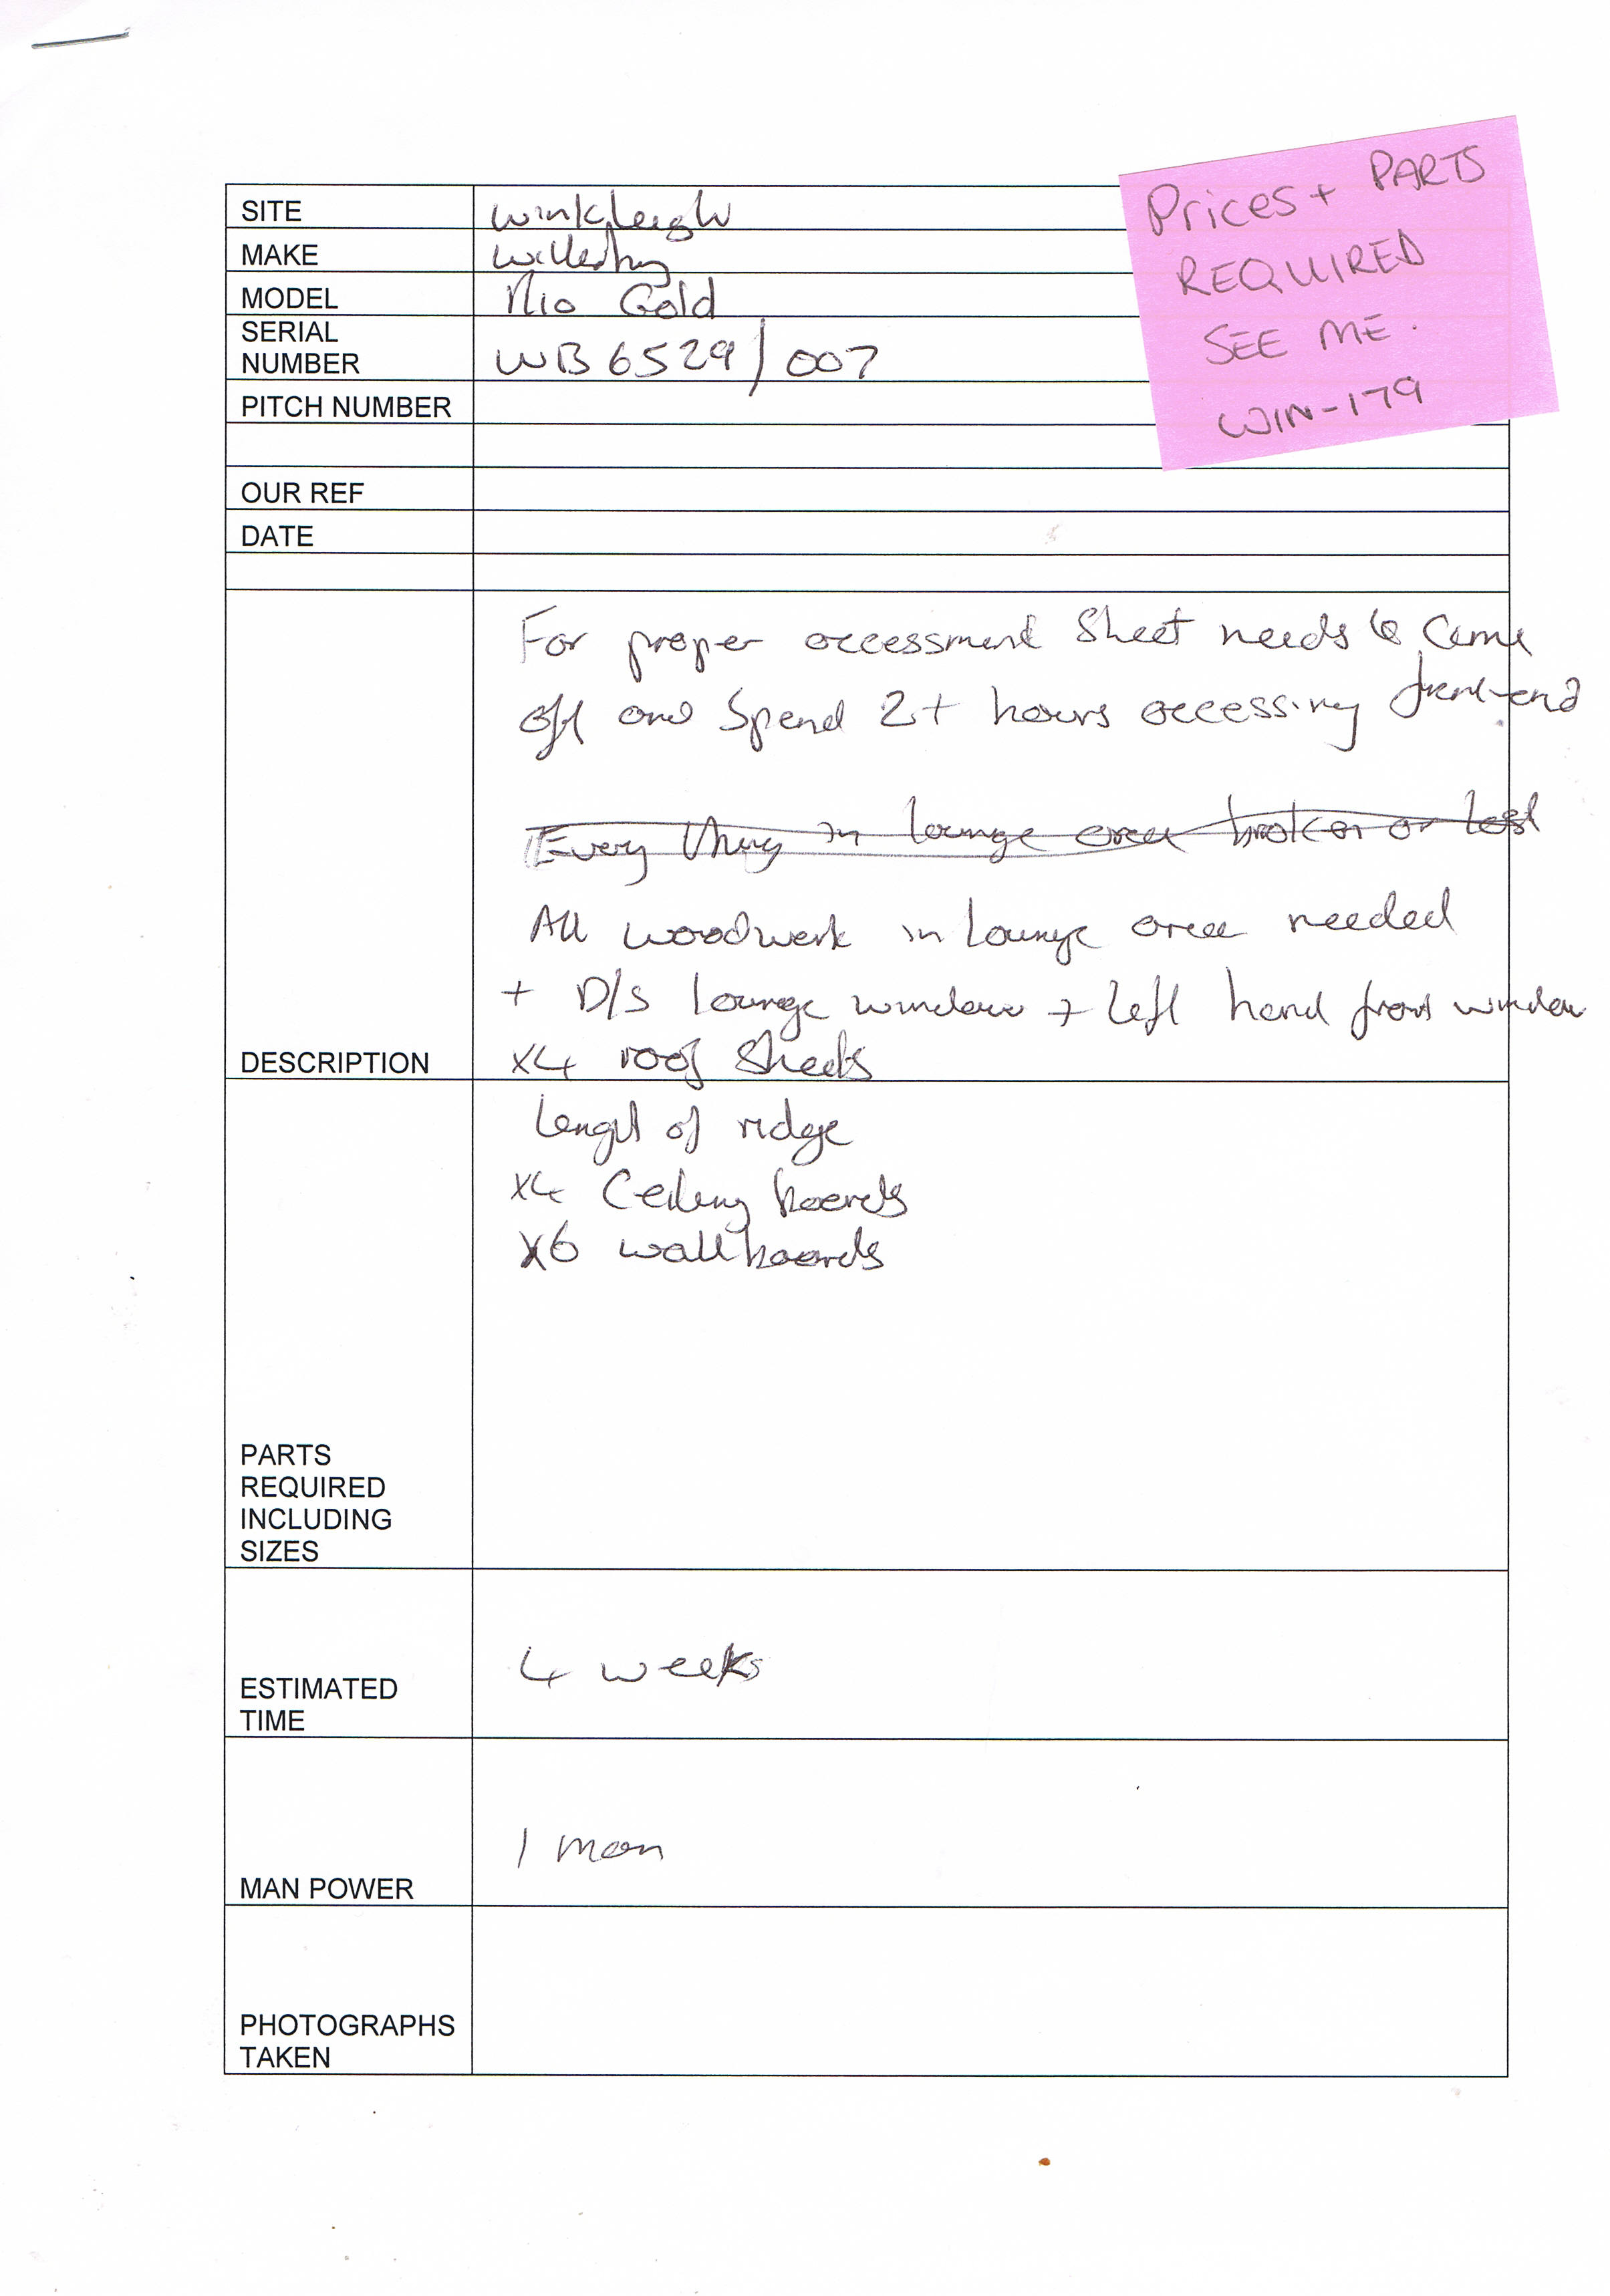 Prices + PARTS
REQUIRED
SEE ME.
WIN-179
SITE winkleigh
MAKE Willerby
MODEL Rio Gold
SERIAL
NUMBER WB6529/007
PITCH NUMBER
OUR REF
DATE
For proper accessment Sheet needs to come
off and Spend 2+ hours accessing front-end
Every thing in lounge area broken or lost
All woodwork in lounge area needed
+ D/S lounge window + left hand front window
DESCRIPTION x4 roof Sheets
Length of ridge
x4 Ceiling boards
x6 wallboards
PARTS
REQUIRED
INCLUDING
SIZES
4 weeks
ESTIMATED
TIME
1 man
MAN POWER
PHOTOGRAPHS
TAKEN